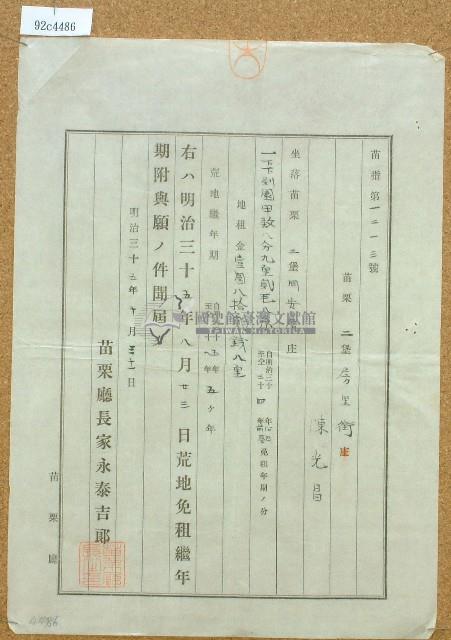 92c4486
苗督第一二一三號
苗栗 二堡房里街庄
陳光昌
坐落苗栗 二堡 安 庄
一下下則園甲數八分九厘貳毛
自明治三十 年
至仝 三十四年 免租年期ノ分
地租金壹圓八拾 錢八厘
荒地繼年期 自 十五年 至 十 年 五ヶ年
右ハ明治三十五年八月廿三日荒地免租繼年
期附與願ノ件聞屆
明治三十五年十月三十一日
苗栗廳長家永泰吉郞
苗栗廳
國史館臺灣文獻館
TAIWAN HISTORICA
4486